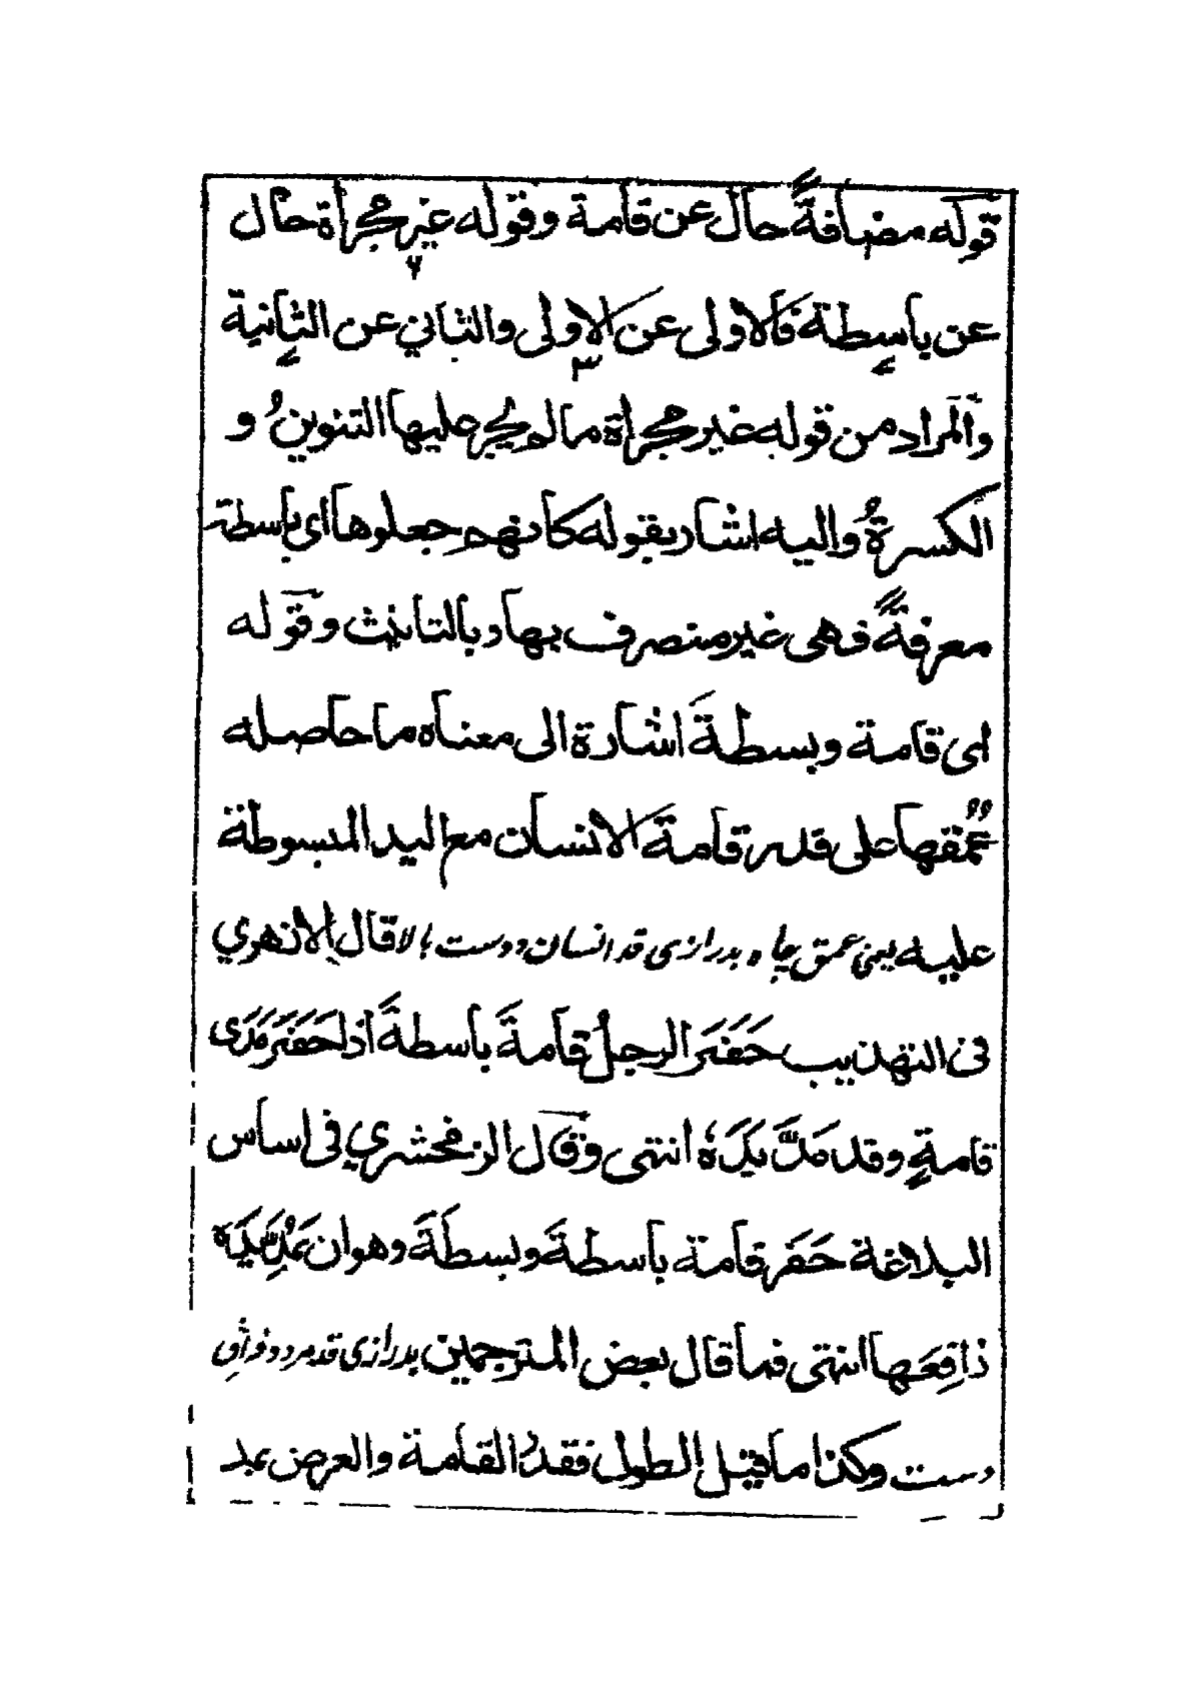 قوله مضافةً حال عن قامة وقوله غير مجراة حال
عن باسطة فالاولى عن الاولى والثاني عن الثانية
والمراد من قوله غير مجراة مالم يجر عليها التنوينُ و
الكسرةُ واليه اشار بقوله كانهم جعلوها اى باسطة
معرفةً فهى غير منصرف بها وبالتانيث وقوله
اى قامة وبسطةَ اشارة الى معناه ما حاصله
عُمُقها على قدر قامة الانسان مع اليد المبسوطة
عليه يعنى عمق چاه بدرازى قد انسان ودست بالا قال الازهري
فى التهذيب حَفَرَ الرجلُ قامةَ باسطةً اذا حَفَرَ مَدَى
قامةٍ وقد مَدَّ يَدَهُ انتهى وقال الزمخشري فى اساس
البلاغة حَفَر قامة باسطةَ وبسطَةَ وهو ان يَمُدَّ يَدَه
رافِعَها انتهى فما قال بعض المترجمين بدرازى قد مرد وفراخى
دست وكذا ما قيل الطول فقدرُ القامة والعرض بمد